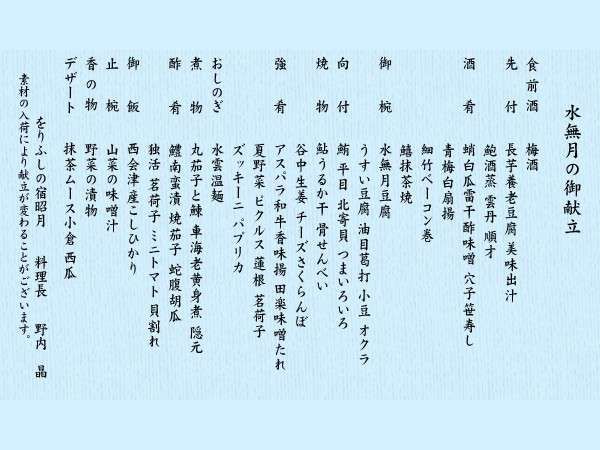 水無月の御献立
食前酒 梅酒
先付 長芋養老豆腐 美味出汁
鮑酒蒸 雲丹 順才
酒肴 蛸白瓜雷干 酢味噌 穴子笹寿し
青梅白扇揚
細竹ベーコン巻
鱚抹茶焼
御椀 水無月豆腐
うすい豆腐 油目葛打 小豆 オクラ
向付 鮪 平目 北寄貝 つまいろいろ
焼物 鮎うるか干 骨せんべい
谷中生姜 チーズさくらんぼ
強肴 アスパラ和牛香味揚 田楽味噌たれ
夏野菜 ピクルス 蓮根 茗荷子
ズッキーニ パプリカ
おしのぎ 水雲温麺
煮物 丸茄子と鰊 車海老黄身煮 隠元
酢肴 鱧南蛮漬 焼茄子 蛇腹胡瓜
独活 茗荷子 ミニトマト 貝割れ
御飯 西会津産こしひかり
止椀 山菜の味噌汁
香の物 野菜の漬物
デザート 抹茶ムース小倉 西瓜
をりふしの宿昭月 料理長 野内 晶
素材の入荷により献立が変わることがございます。